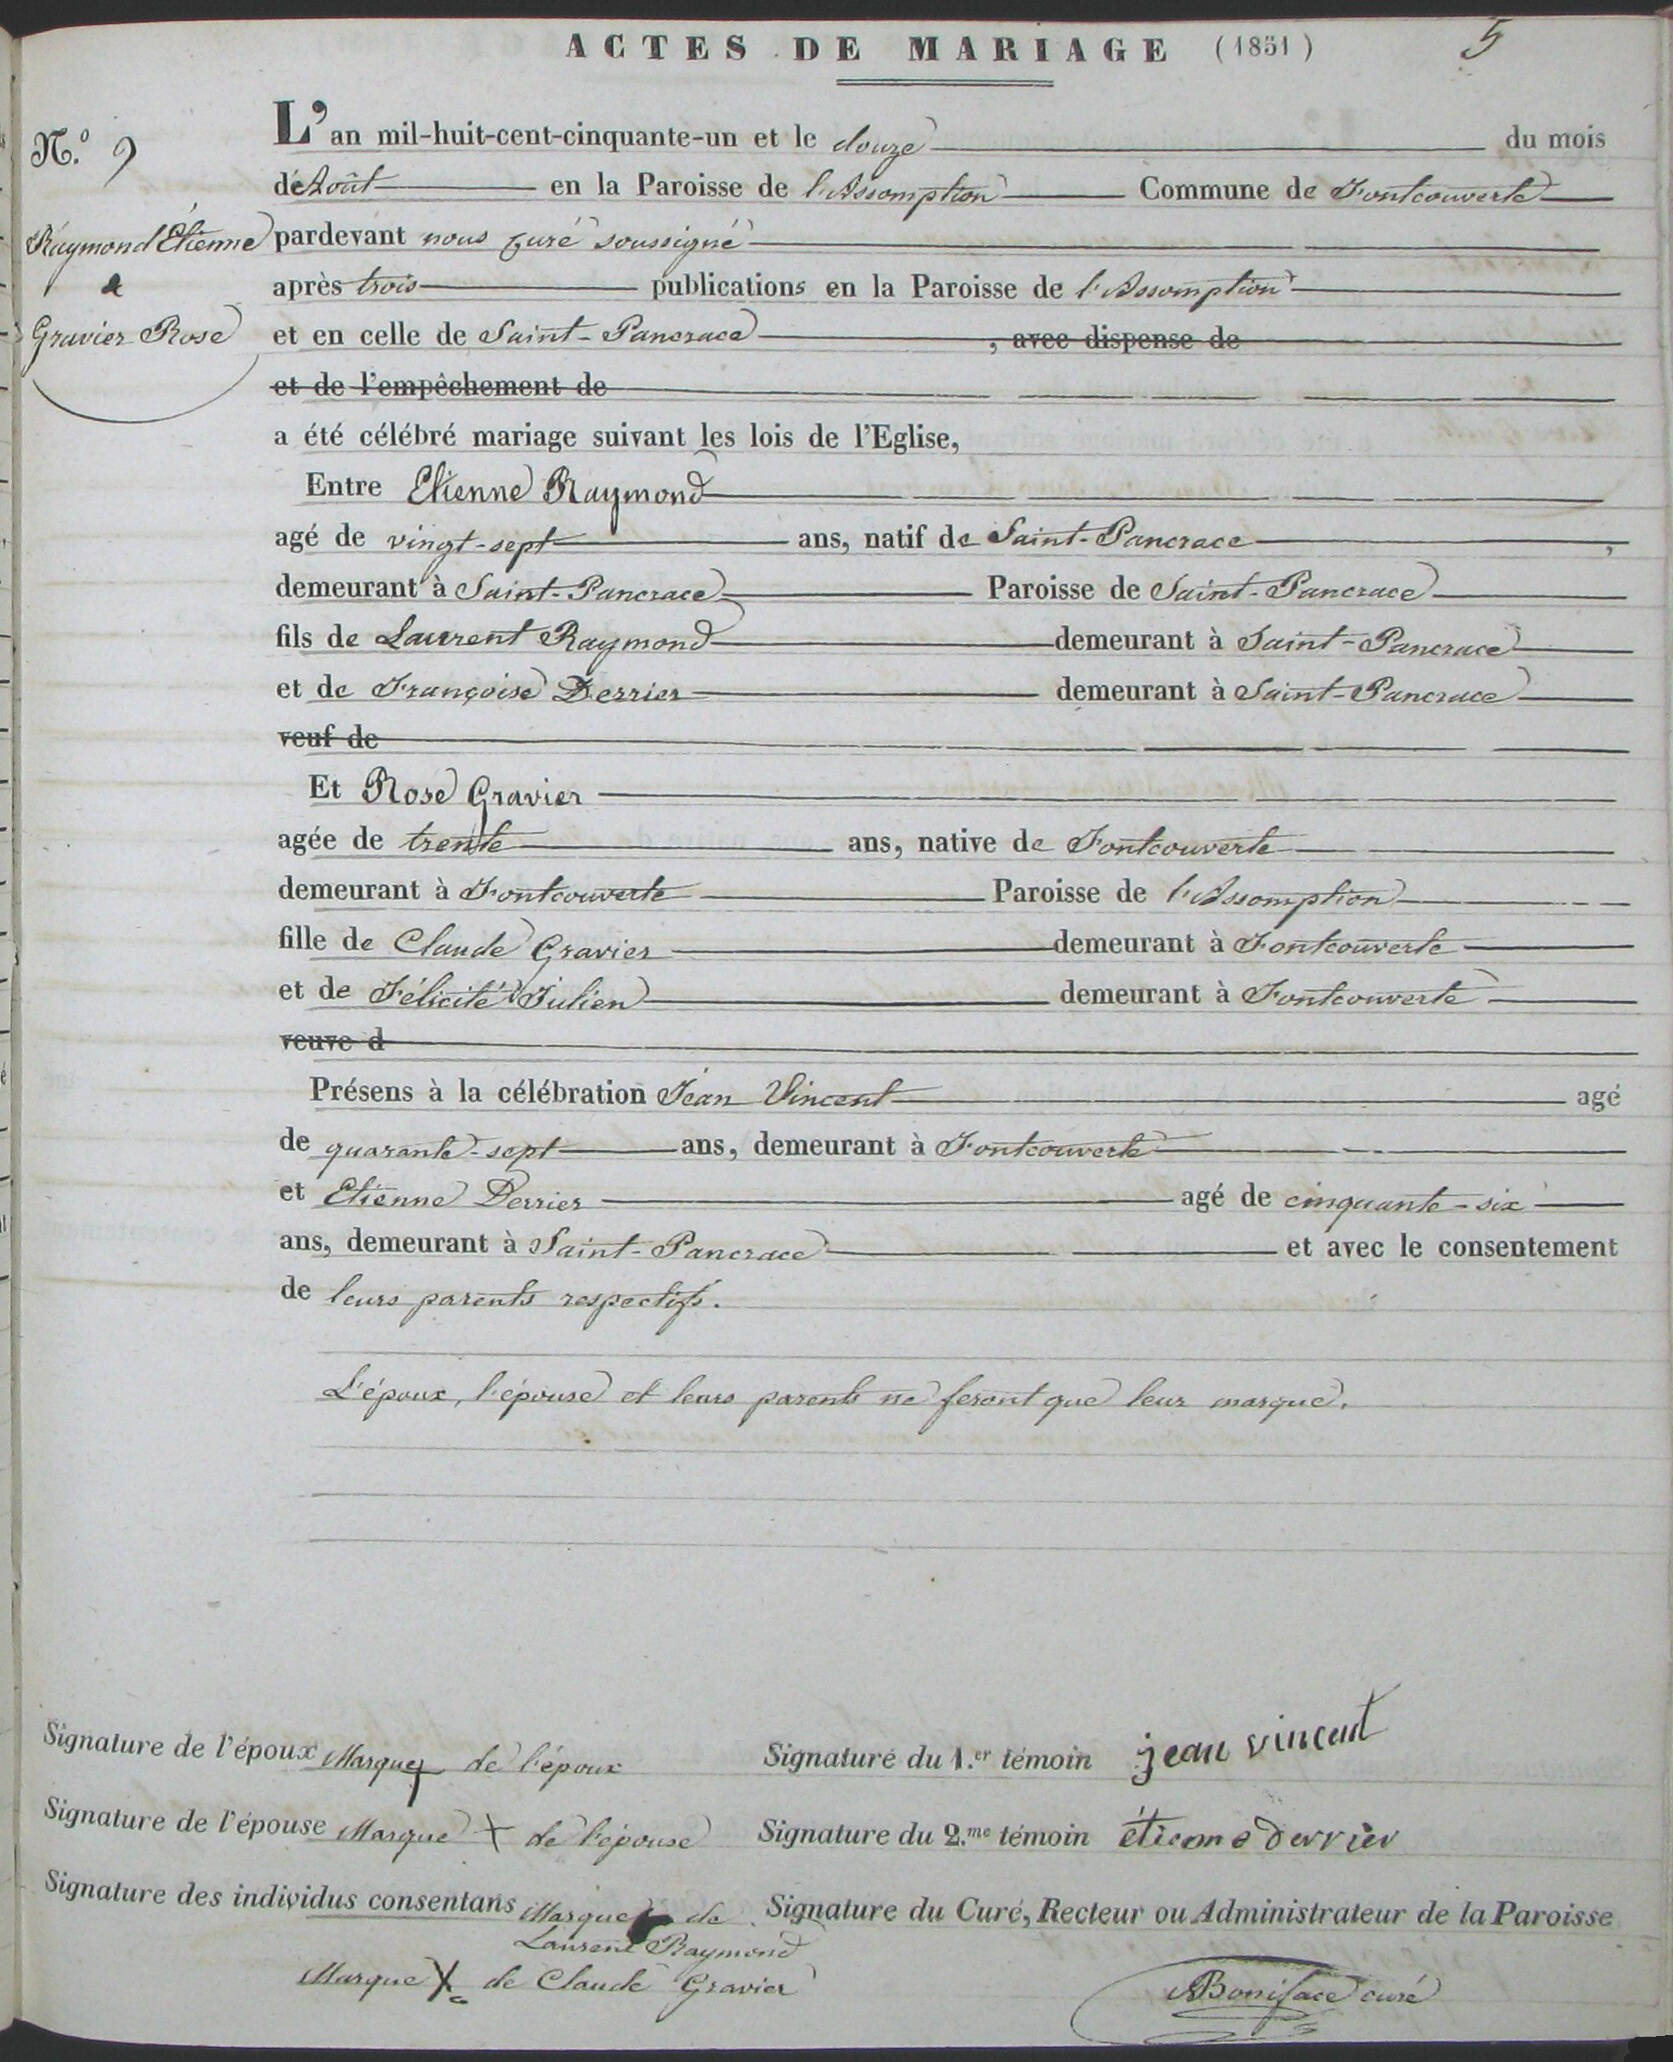 ACTES DE MARIAGE (1851) 5
N.º 9
Raymond Étienne
&
Gravier Rose
L'an mil-huit-cent-cinquante-un et le douze du mois
de Août en la Paroisse de l'Assomption Commune de Fontcouverte
pardevant nous curé soussigné
après trois publications en la Paroisse de l'Assomption
et en celle de Saint-Pancrace, avec dispense de
et de l'empêchement de
a été célébré mariage suivant les lois de l'Eglise,
Entre Etienne Raymond
agé de vingt-sept ans, natif de Saint-Pancrace,
demeurant à Saint-Pancrace Paroisse de Saint-Pancrace
fils de Laurent Raymond demeurant à Saint-Pancrace
et de Françoise Derrier demeurant à Saint-Pancrace
veuf de
Et Rose Gravier
agée de trente ans, native de Fontcouverte
demeurant à Fontcouverte Paroisse de l'Assomption
fille de Claude Gravier demeurant à Fontcouverte
et de Félicité Julien demeurant à Fontcouverte
veuve d
Présens à la célébration Jean Vincent agé
de quarante-sept ans, demeurant à Fontcouverte
et Etienne Derrier agé de cinquante-six
ans, demeurant à Saint-Pancrace et avec le consentement
de leurs parents respectifs.
L'époux, l'épouse et leurs parents ne feront que leur marque.
Signature de l'époux Marque + de l'époux Signature du 1.er témoin jean vincent
Signature de l'épouse Marque + de l'épouse Signature du 2.me témoin étienne derrier
Signature des individus consentans Marque de Signature du Curé, Recteur ou Administrateur de la Paroisse
Laurent Raymond
Marque X de Claude Gravier Boniface curé